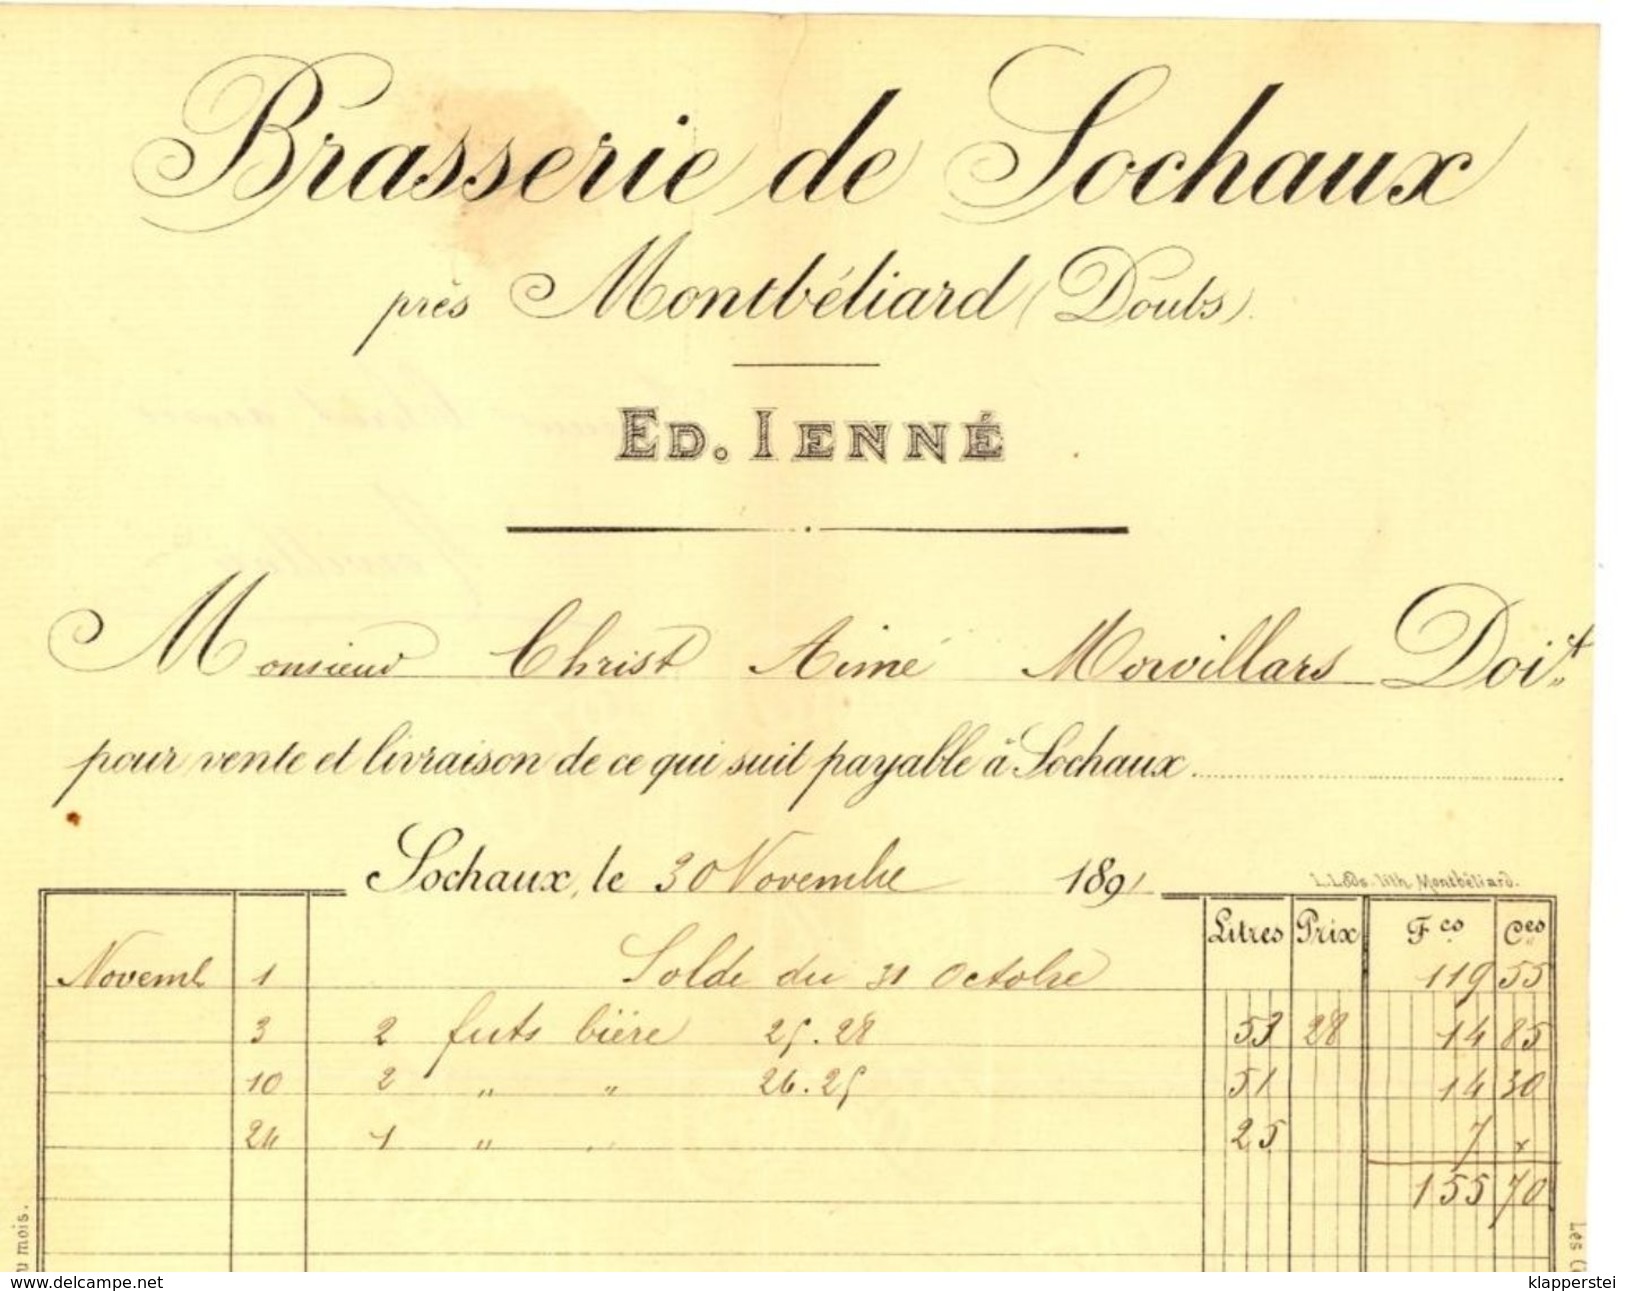 Brasserie de Sochaux
près Montbéliard (Doubs).
ED. IENNÉ
Monsieur Christ Aimé Morvillars Doit
pour vente et livraison de ce qui suit payable à Sochaux
Sochaux, le 30 Novembre 1891
L. Lods. lith. Montbéliard.
Litres Prix Fcs Ces
Novemb 1 Solde du 31 Octobre 119 55
3 2 futs bière 25.28 53 28 14 85
10 2 " " 26.25 51 14 30
24 1 " " 25 7 x
155 70
u mois.
Les
www.delcampe.net
klapperstei